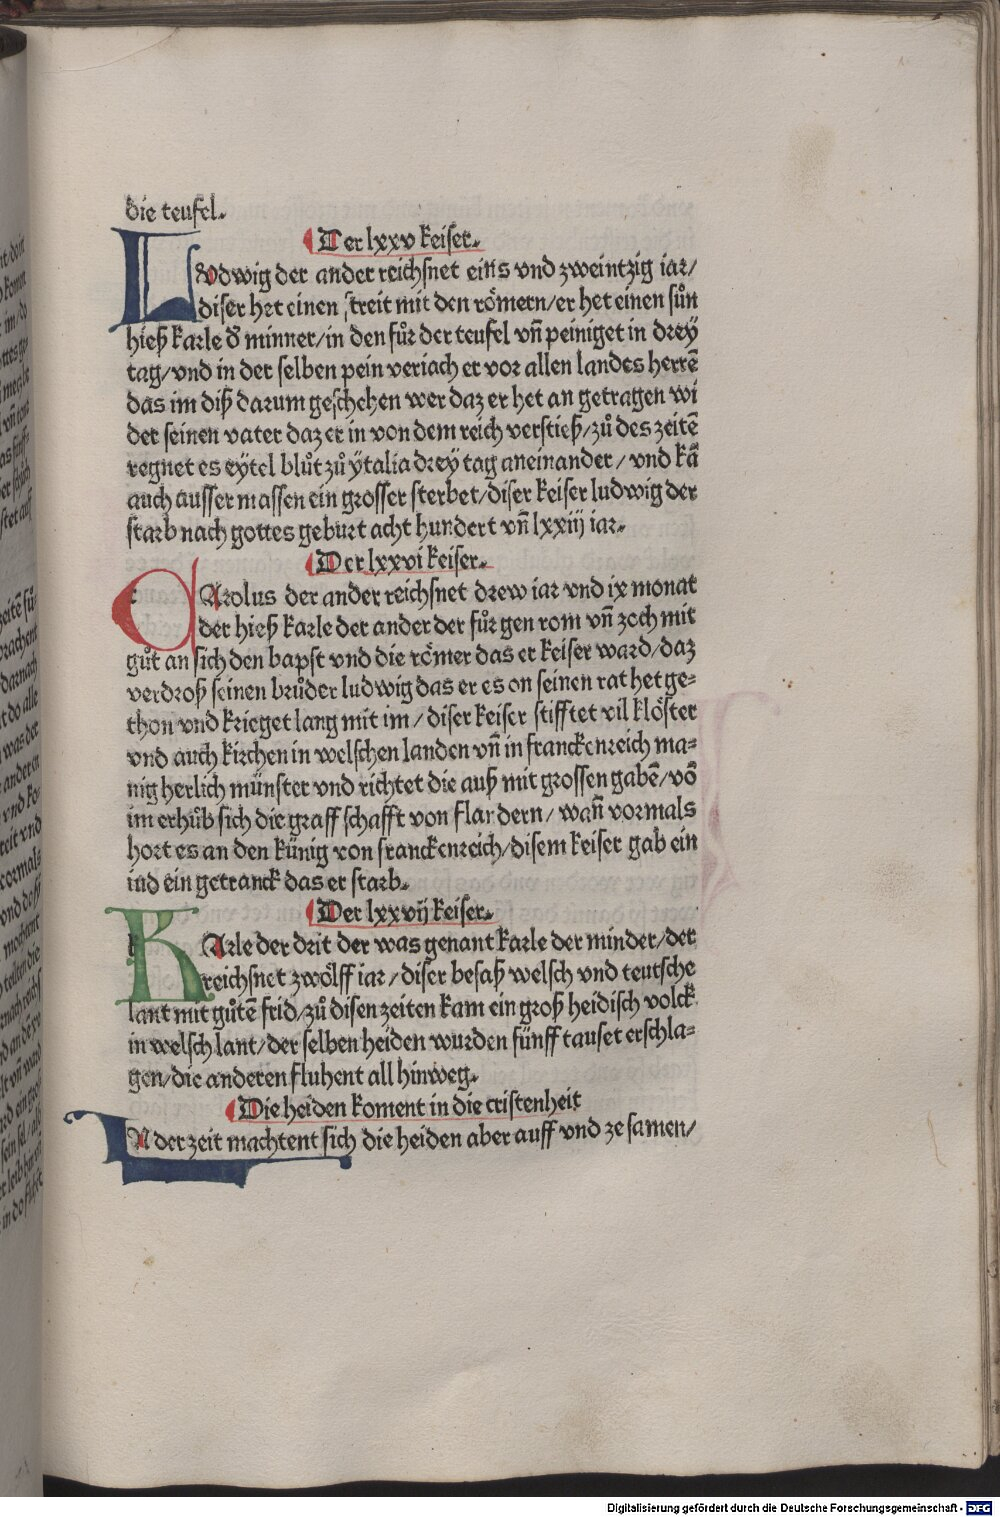 die teufel.
Der lxxv keiser.
LVdwig der ander reichsnet eins vnd zweintzig iar/
diser het einen streit mit den römern/er het einen sůn
hieß karle d̕ minner/in den fůr der teufel vn̄ peiniget in dreÿ
tag/vnd in der selben pein veriach er vor allen landes herrē
das im diß darum geschehen wer daz er het an getragen wi
der seinen vater daz er in von dem reich verstieß/zů des zeitē
regnet es eÿtel blůt zů ÿtalia dreÿ tag aneinander/vnd kā
auch ausser massen ein grosser sterbet/diser keiser ludwig der
starb nach gottes geburt acht hundert vn̄ lxxiij iar.
Der lxxvi keiser.
CArolus der ander reichsnet drew iar vnd ix monat
der hieß karle der ander der fůr gen rom vn̄ zoch mit
gůt an sich den bapst vnd die römer das er keiser ward/daz
verdroß seinen brůder ludwig das er es on seinen rat het ge=
thon vnd krieget lang mit im/diser keiser stifftet vil klöster
vnd auch kirchen in welschen landen vn̄ in franckenreich ma=
nig herlich münster vnd richtet die auß mit grossen gabē/vō
im erhůb sich die graffschafft von flandern/wan̄ vormals
hort es an den künig von franckenreich/disem keiser gab ein
iud ein getranck das er starb.
Der lxxvij keiser.
KArle der drit der was genant karle der minder/der
reichsnet zwölff iar/diser besaß welsch vnd teutsche
lant mit gůtē frid/zů disen zeiten kam ein groß heidisch volck
in welsch lant/der selben heiden wurden fünff tauset erschla=
gen/die anderen fluhent all hinweg.
Die heiden koment in die cristenheit
IN der zeit machtent sich die heiden aber auff vnd ze samen/
Digitalisierung gefördert durch die Deutsche Forschungsgemeinschaft - DFG